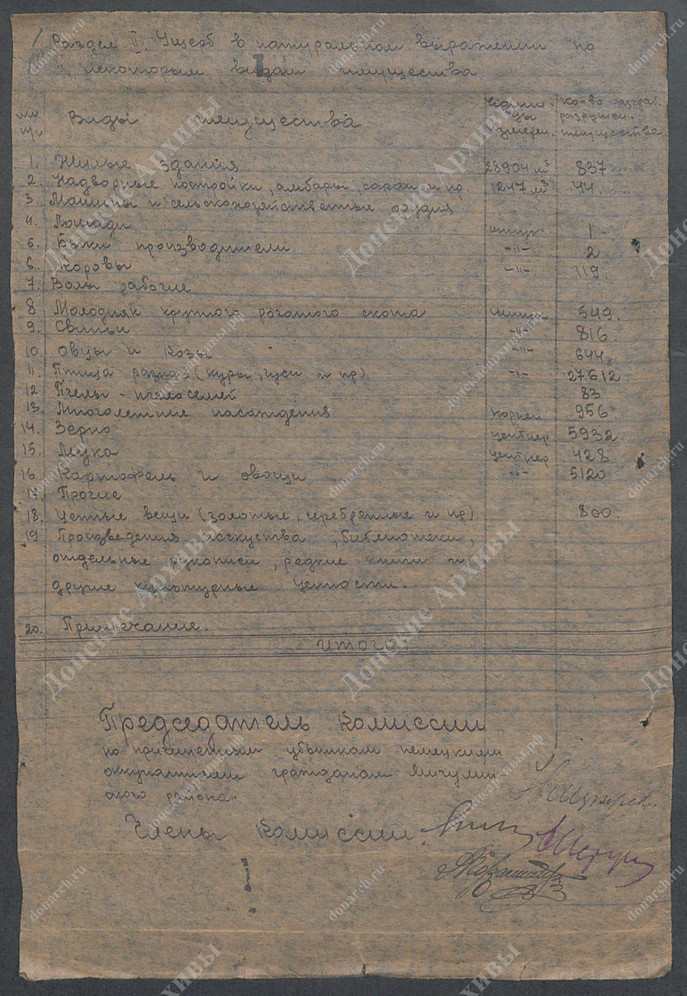 Раздел II. Ущерб в натуральном выражении по
некоторым видам имущества
№№ п/п Виды имущества Едини- цы измерен. кол-во разгра. разрушен. имущества
1. Жилые здания 28904 м³ 837
2. Надворные постройки, амбары, сараи и пр. 1247 м³ 44
3 Машины и сельскохозяйственные орудия
4. Лошади штук 1-
5. Быки производители -"- 2
6. Коровы -"- 119
7. Волы рабочие
8 Молодняк крупного рогатого скота штук 549.
9. Свиньи -"- 816.
10. Овцы и козы -"- 644.
11. Птица разная (куры, гуси и пр) -"- 27612.
12 Пчелы - пчелосемей 83
13. Многолетние насаждения корней 956
14. Зерно центнер 5932.
15. Мука центнер 428
16 Картофель и овощи -"- 5120
17 Прочие
18. Ценные вещи (золотые, серебрянные и пр) 800.
19 Произведения исскуства, библиотеки,
отдельные рукописи, редкие книги и
другие культурные ценности.
20. Примечание.
Итого:
Председатель Комиссии
по причиненным убыткам немецкими
оккупантами гражданам Мигулин-
ского района.
Члены Комиссии:
Донские Архивы
donarch.ru